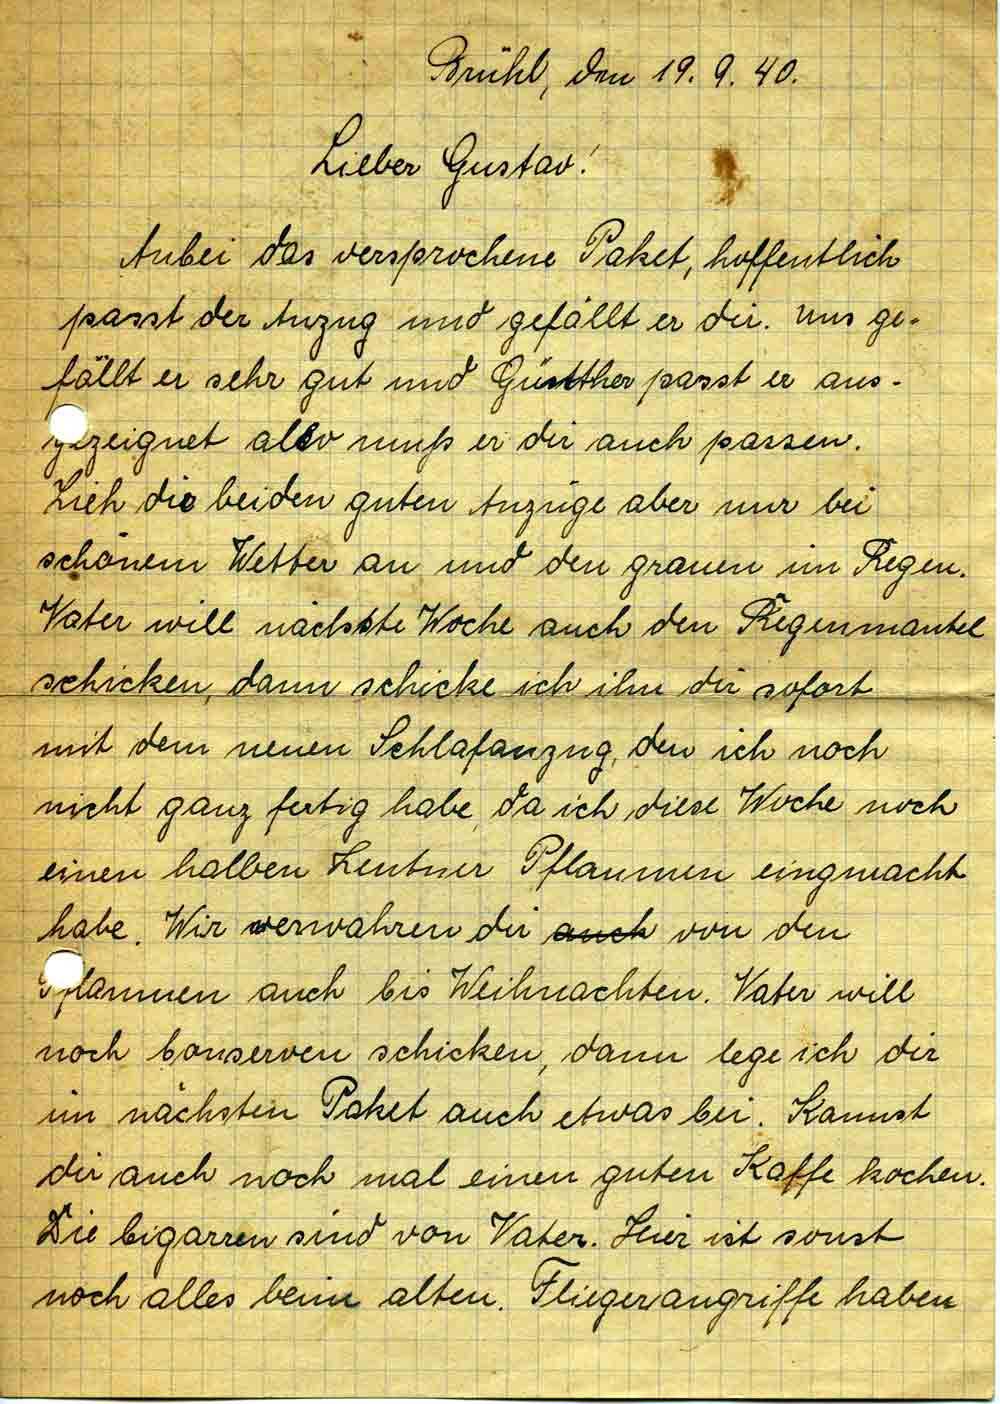 Brühl, den 19. 9. 40.
Lieber Gustav!
Anbei das versprochene Paket, hoffentlich
passt der Anzug und gefällt er dir. Uns ge-
fällt er sehr gut und Günther passt er aus-
gezeignet also muß er dir auch passen.
Zieh die beiden guten Anzüge aber nur bei
schönem Wetter an und den grauen im Regen.
Vater will nächste Woche auch den Regenmantel
schicken, dann schicke ich ihn dir sofort
mit dem neuen Schlafanzug, den ich noch
nicht ganz fertig habe, da ich diese Woche noch
einen halben Zentner Pflaumen eingmacht
habe. Wir verwahren dir auch von den
Pflaumen auch bis Weihnachten. Vater will
noch Conserven schicken, dann lege ich dir
im nächsten Paket auch etwas bei. Kannst
dir auch noch mal einen guten Kaffe kochen.
Die Cigarren sind von Vater. Hier ist sonst
noch alles beim alten. Fliegerangriffe haben